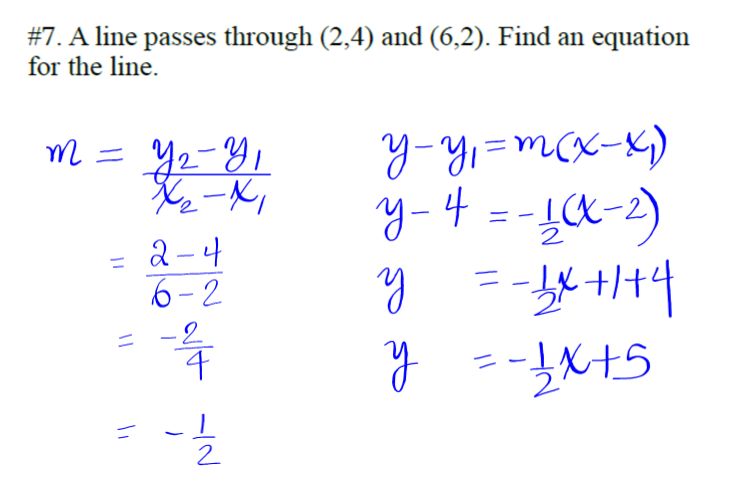 #7. A line passes through (2,4) and (6,2). Find an equation
for the line.
m = y₂-y₁/x₂-x₁
= 2-4/6-2
= -2/4
= -1/2
y-y₁=m(x-x₁)
y-4 =-1/2(x-2)
y =-1/2x+1+4
y =-1/2x+5